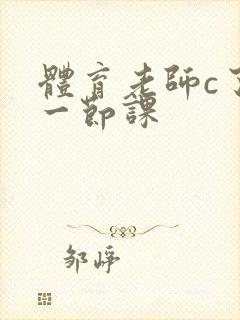 體育老師c了
一節課
邹崢